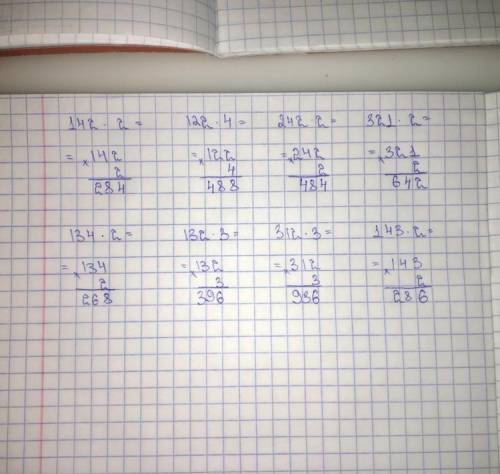 142 · 2 = 122 · 4 = 242 · 2 = 321 · 2 =
= × 142 = × 122 = × 242 = × 321
2 4 2 2
284 488 484 642
134 · 2 = 132 · 3 = 312 · 3 = 143 · 2 =
= × 134 = × 132 = × 312 = × 143
2 3 3 2
268 396 986 286